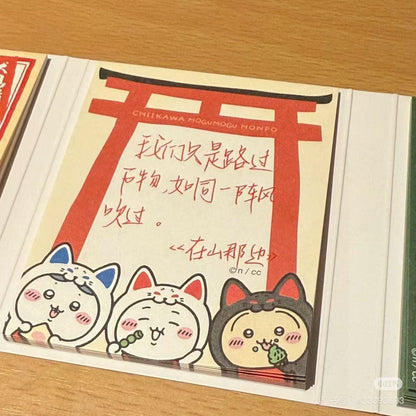 CHIIKAWA MOGUMOGU MONPO
我们只是路过
万物,如同一阵风
吹过。
《在山那边》
©n/cc